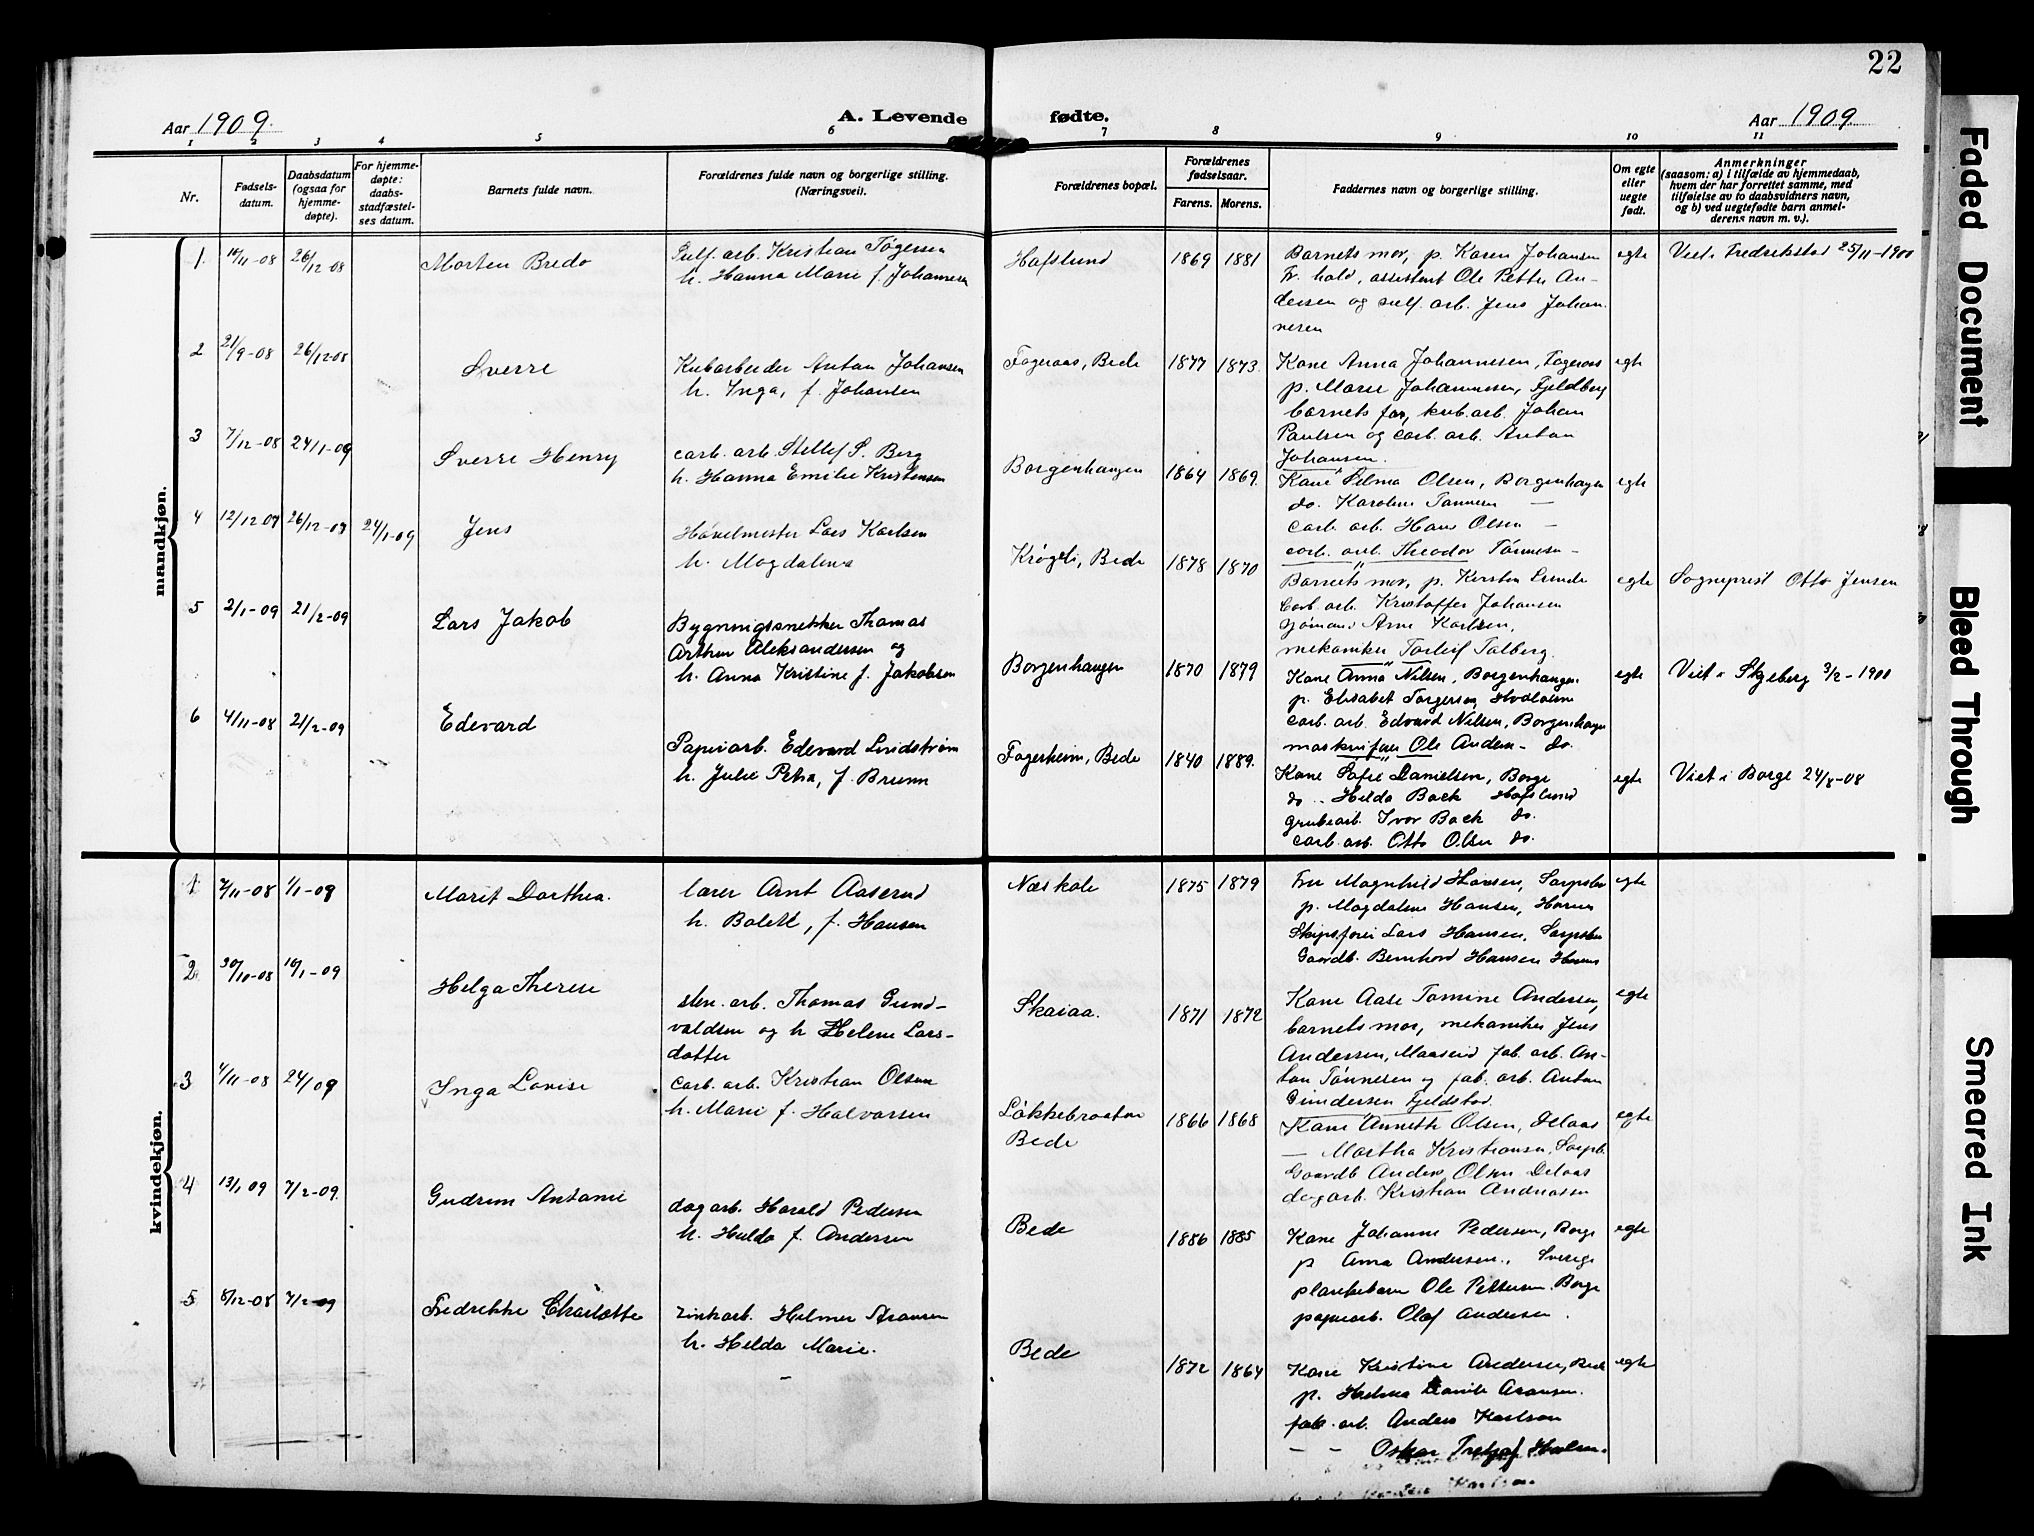 22
Aar 1909.
A. Levende fødte.
Aar 1909.
1 2 3 4 5 6 7 8 9 10 11
Nr.
Fødsels-
datum.
Daabsdatum
(ogsaa for
hjemme-
døpte).
For hjemme-
døpte:
daabs-
stadfæstel-
ses datum.
Barnets fulde navn.
Forældrenes fulde navn og borgerlige stilling.
(Næringsveil.
Forældrenes bopæl.
Forældrenes
fødselsaar.
Farens. Morens.
Faddernes navn og borgerlige stilling.
Om egte
eller
uegte
født.
Anmerkninger
(saasom: a) i tilfælde av hjemmedaab,
hvem der har forrettet samme, med
tilføielse av to daabsvidners navn,
og b) ved uegtefødte barn anmel-
derens navn m. v.).
mandkjøn.
1. 26/12-08 Morten Bredo
Kristian Tøgersen
h. Hanna Marie f. Johansen
Hafslund 1869 1881
Barnets mor, p. Karen Johansen
assistent Ole Petter An-
dersen og sulf. arb. Jens Johan-
nesen
egte
Viet i Fredrikstad 25/11-1900
2 21/9-08 26/12-08 Sverre
Kubarbeider Anton Johansen
h. Inga, f. Johansen
Fageraas, Bede 1877 1873.
Kone Anna Johannesen, Fageraas
p. Marie Johannesen, Fjeldberg
barnets far, kub. arb. Johan
Paulsen og carb. arb. Anton
Johansen.
egte
3 7/12-08 24/1-09 Sverre Henry
carb. arb. S. Berg
h. Hanna Emilie Kristensen
Borgenhaugen 1864 1869.
Kone Selma Olsen, Borgenhaugen
do. Karoline Tønnesen —
carb. arb. Hans Olsen —
carb. arb. Theodor Tönnesen —
egte
4 12/12-07 26/12-07 24/1-09 Jens
Høvelmester Lars Karlsen
h. Magdalena
Bede 1878 1870
Barnets mor, p. Kirsten Lunde
Carb. arb. Kristoffer Johansen
Arne Karlsen,
mekaniker Torleif Talberg.
egte
Sogneprest Otto Jensen
5 2/1-09 21/2-09 Lars Jakob
Bygningssnekker Thomas
Arthur Aleksandersen og
h. Anna Kristine f. Jakobsen
Borgenhaugen 1870 1879
Kone Anna Nilsen, Borgenhaugen
p. Elisabet Torgersen
carb. arb. Edvard Nilsen, Borgenhaugen
Ole Anders- do.
egte
Viet i Skjeberg 3/2-1900
6 4/11-08 21/2-09 Edevard
Papirarb. Edevard Lindstrøm
h. Julie Petra, f. Bruun
Fagerheim, Bede 1840 1889.
Kone Sofie Danielsen, Borge
do .. Hilda Back Hafslund
grubearb. Ivar Back do.
carb. arb. Otto Olsen do.
egte
Viet i Borge 24/8-08
kvindekjøn.
1 7/11-08 1/1-09 Marit Dorthea.
lærer Arnt Aaserud
h. Bolett, f. Hansen
Næskole 1875 1879
Fru Magnhild Hansen, Sarpsbo
p. Magdalene Hansen,
Skipsfører Lars Hansen, Sarpsbo
Gaardb. Bernhard Hansen
egte
2 30/10-08 10/1-09 Helga Therese
sten. arb. Thomas Gund-
valdsen og h Helene Lars-
datter
Skaiaa. 1871 1872
Kone Aase Tomine Andersen,
barnets mor, mekaniker Jens
Andersen, fab. arb. An-
ton Tönnesen og fab. arb. Anton
Gundersen Fjeldstad.
egte
3 4/11-08 24/09 Inga Lovise
Carb. arb. Kristian Olsen
h. Marie f. Halvorsen
Løkkebraaten
Bede
1866 1868
Kone Annette Olsen,
— Martha Kristiansen, Sarpb.
Gaardb Anders Olsen
dagarb. Kristian Andreassen
egte
4 13/1 09 7/2-09. Gudrun Antonie
dagarb. Harald Pedersen
h. Hulda f. Andersen
Bede 1886 1885
Kone Johanne Pedersen, Borge
p Anna Andersen., Sverige
Ole Pettersen. Borge
papirarb. Olaf Andersen.
egte
5 8/12-08 7/2-09 Fredrikke Charlotte
zinkarb. Helmer Aronsen
h. Hilda Marie.
Bede
1872 1864
Kone Kristine Andersen, Bede
p. Helma Aronsen.
fab. arb. Anders Karlson
— — Oskar
egte
Faded Document
Bleed Through
Smeared Ink